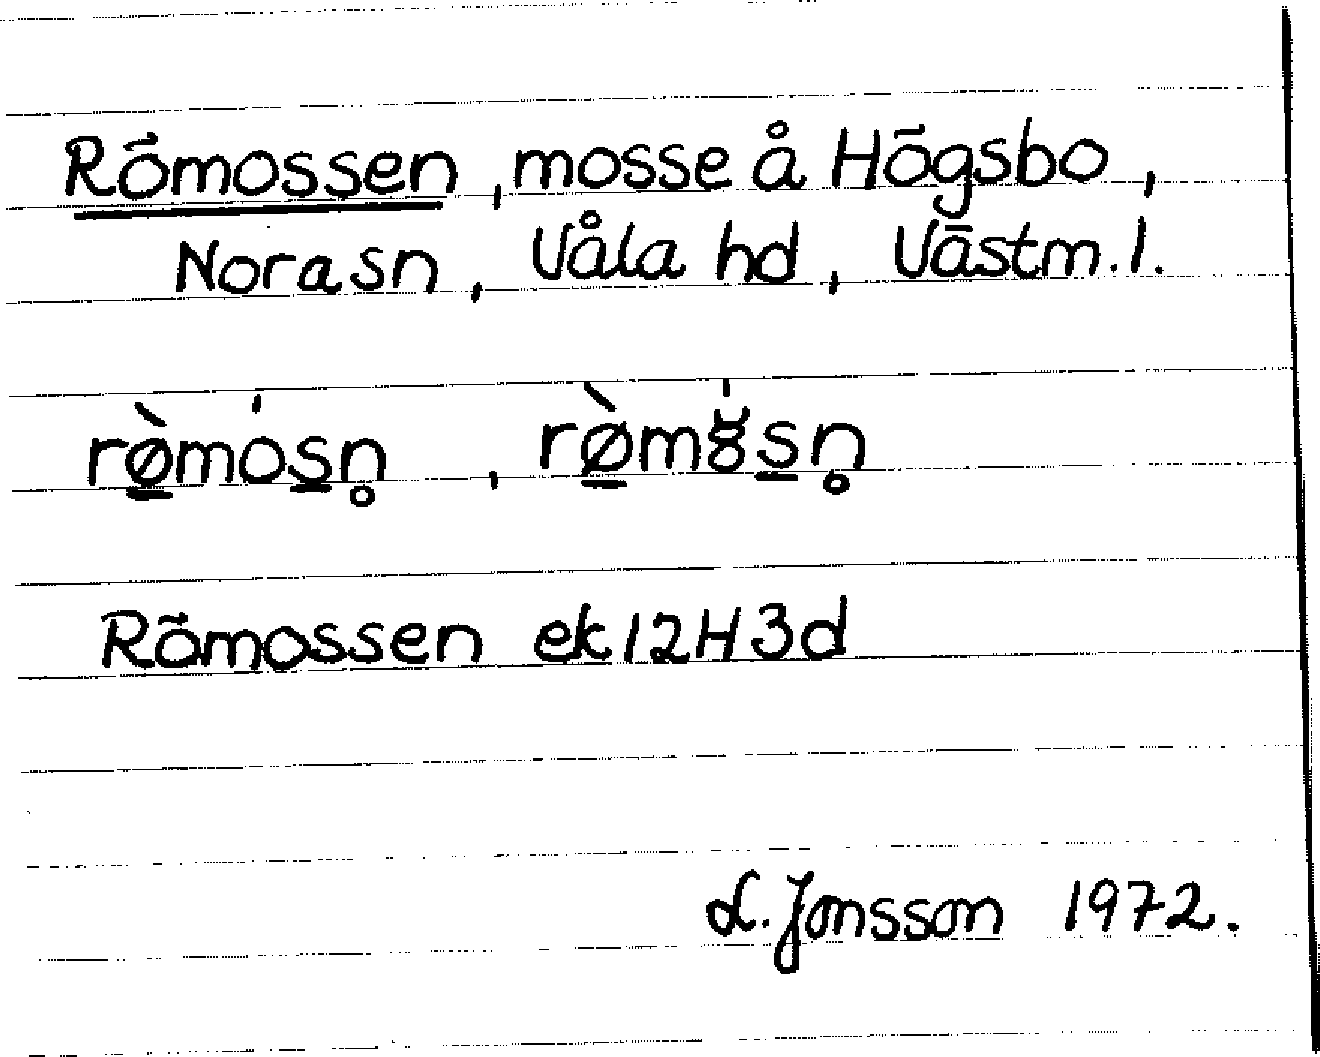 Römossen, mosse å Högsbo,
Nora sn, Våla hd, Västm. l.
rø̀mosn̥, rø̀mo̊sn̥
Römossen ek 12H3d
L. Jonsson 1972.